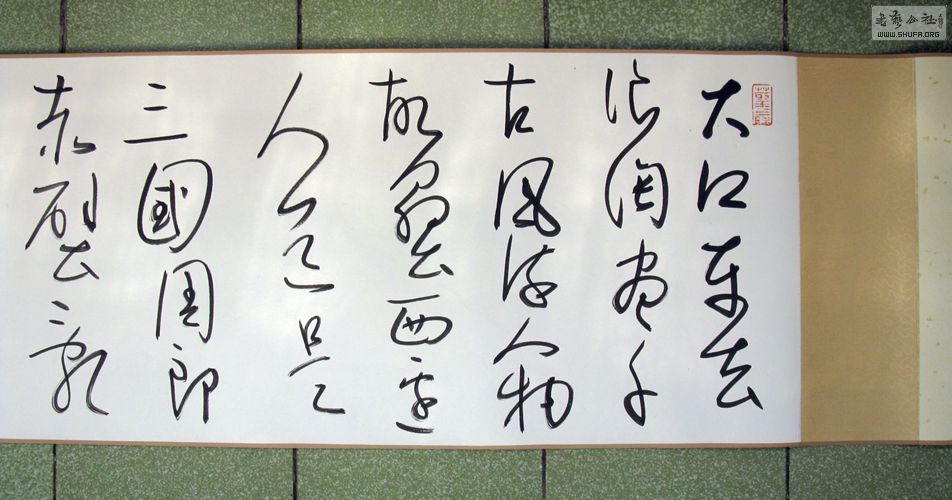 大江東去
浪淘盡千
古風流人物
故壘西邊
人道是
三國周郎
赤壁亂
書藝公社
WWW.SHUFA.ORG